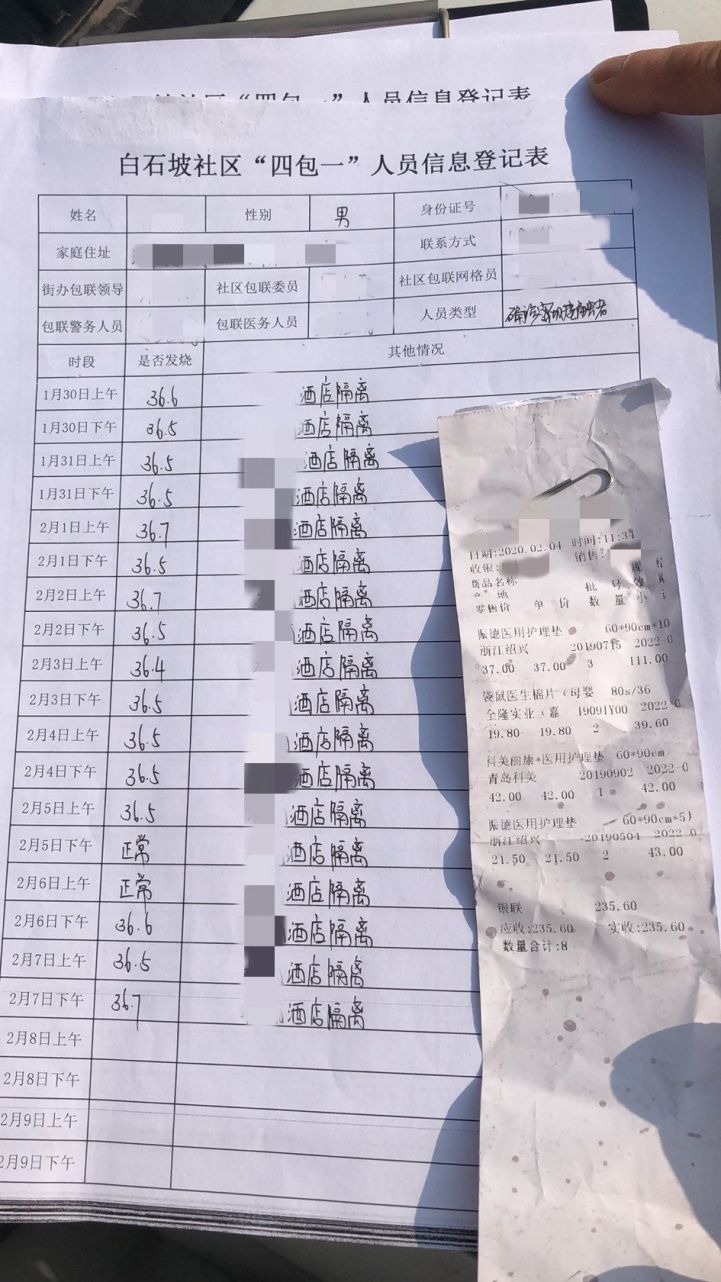 人员信息登记表
白石坡社区“四包一”人员信息登记表
姓名 性别 男 身份证号
家庭住址 联系方式
街办包联领导 社区包联委员 社区包联网格员
包联警务人员 包联医务人员 人员类型 确诊密切接触者
时段 是否发烧 其他情况
1月30日上午 36.6 酒店隔离
1月30日下午 36.5 酒店隔离
1月31日上午 36.5 酒店隔离
1月31日下午 36.5 酒店隔离
2月1日上午 36.7 酒店隔离
2月1日下午 36.5 酒店隔离
2月2日上午 36.7 酒店隔离
2月2日下午 36.5 酒店隔离
2月3日上午 36.4 酒店隔离
2月3日下午 36.5 酒店隔离
2月4日上午 36.5 酒店隔离
2月4日下午 36.5 酒店隔离
2月5日上午 36.5 酒店隔离
2月5日下午 正常 酒店隔离
2月6日上午 正常 酒店隔离
2月6日下午 36.6 酒店隔离
2月7日上午 36.5 酒店隔离
2月7日下午 36.7 酒店隔离
2月8日上午
2月8日下午
2月9日上午
2月9日下午
日期:2020.02.04 时间:11:34
收银: 销售:
商品名称 规格
产地 批号 效期
零售价 单价 数量 小计
振德医用护理垫 60*90cm*10
浙江绍兴 20190715 2022-0
37.00 37.00 3 111.00
袋鼠医生棉片(母婴 80s/36
全隆实业(嘉 19091Y00 2022-0
19.80 19.80 2 39.60
科美丽康*医用护理垫 60*90cm
青岛科美 20190902 2022-0
42.00 42.00 1 42.00
振德医用护理垫 60*90cm*5片
浙江绍兴 20190504 2022-0
21.50 21.50 2 43.00
银联 235.60
应收:235.60 实收:235.60
数量合计:8